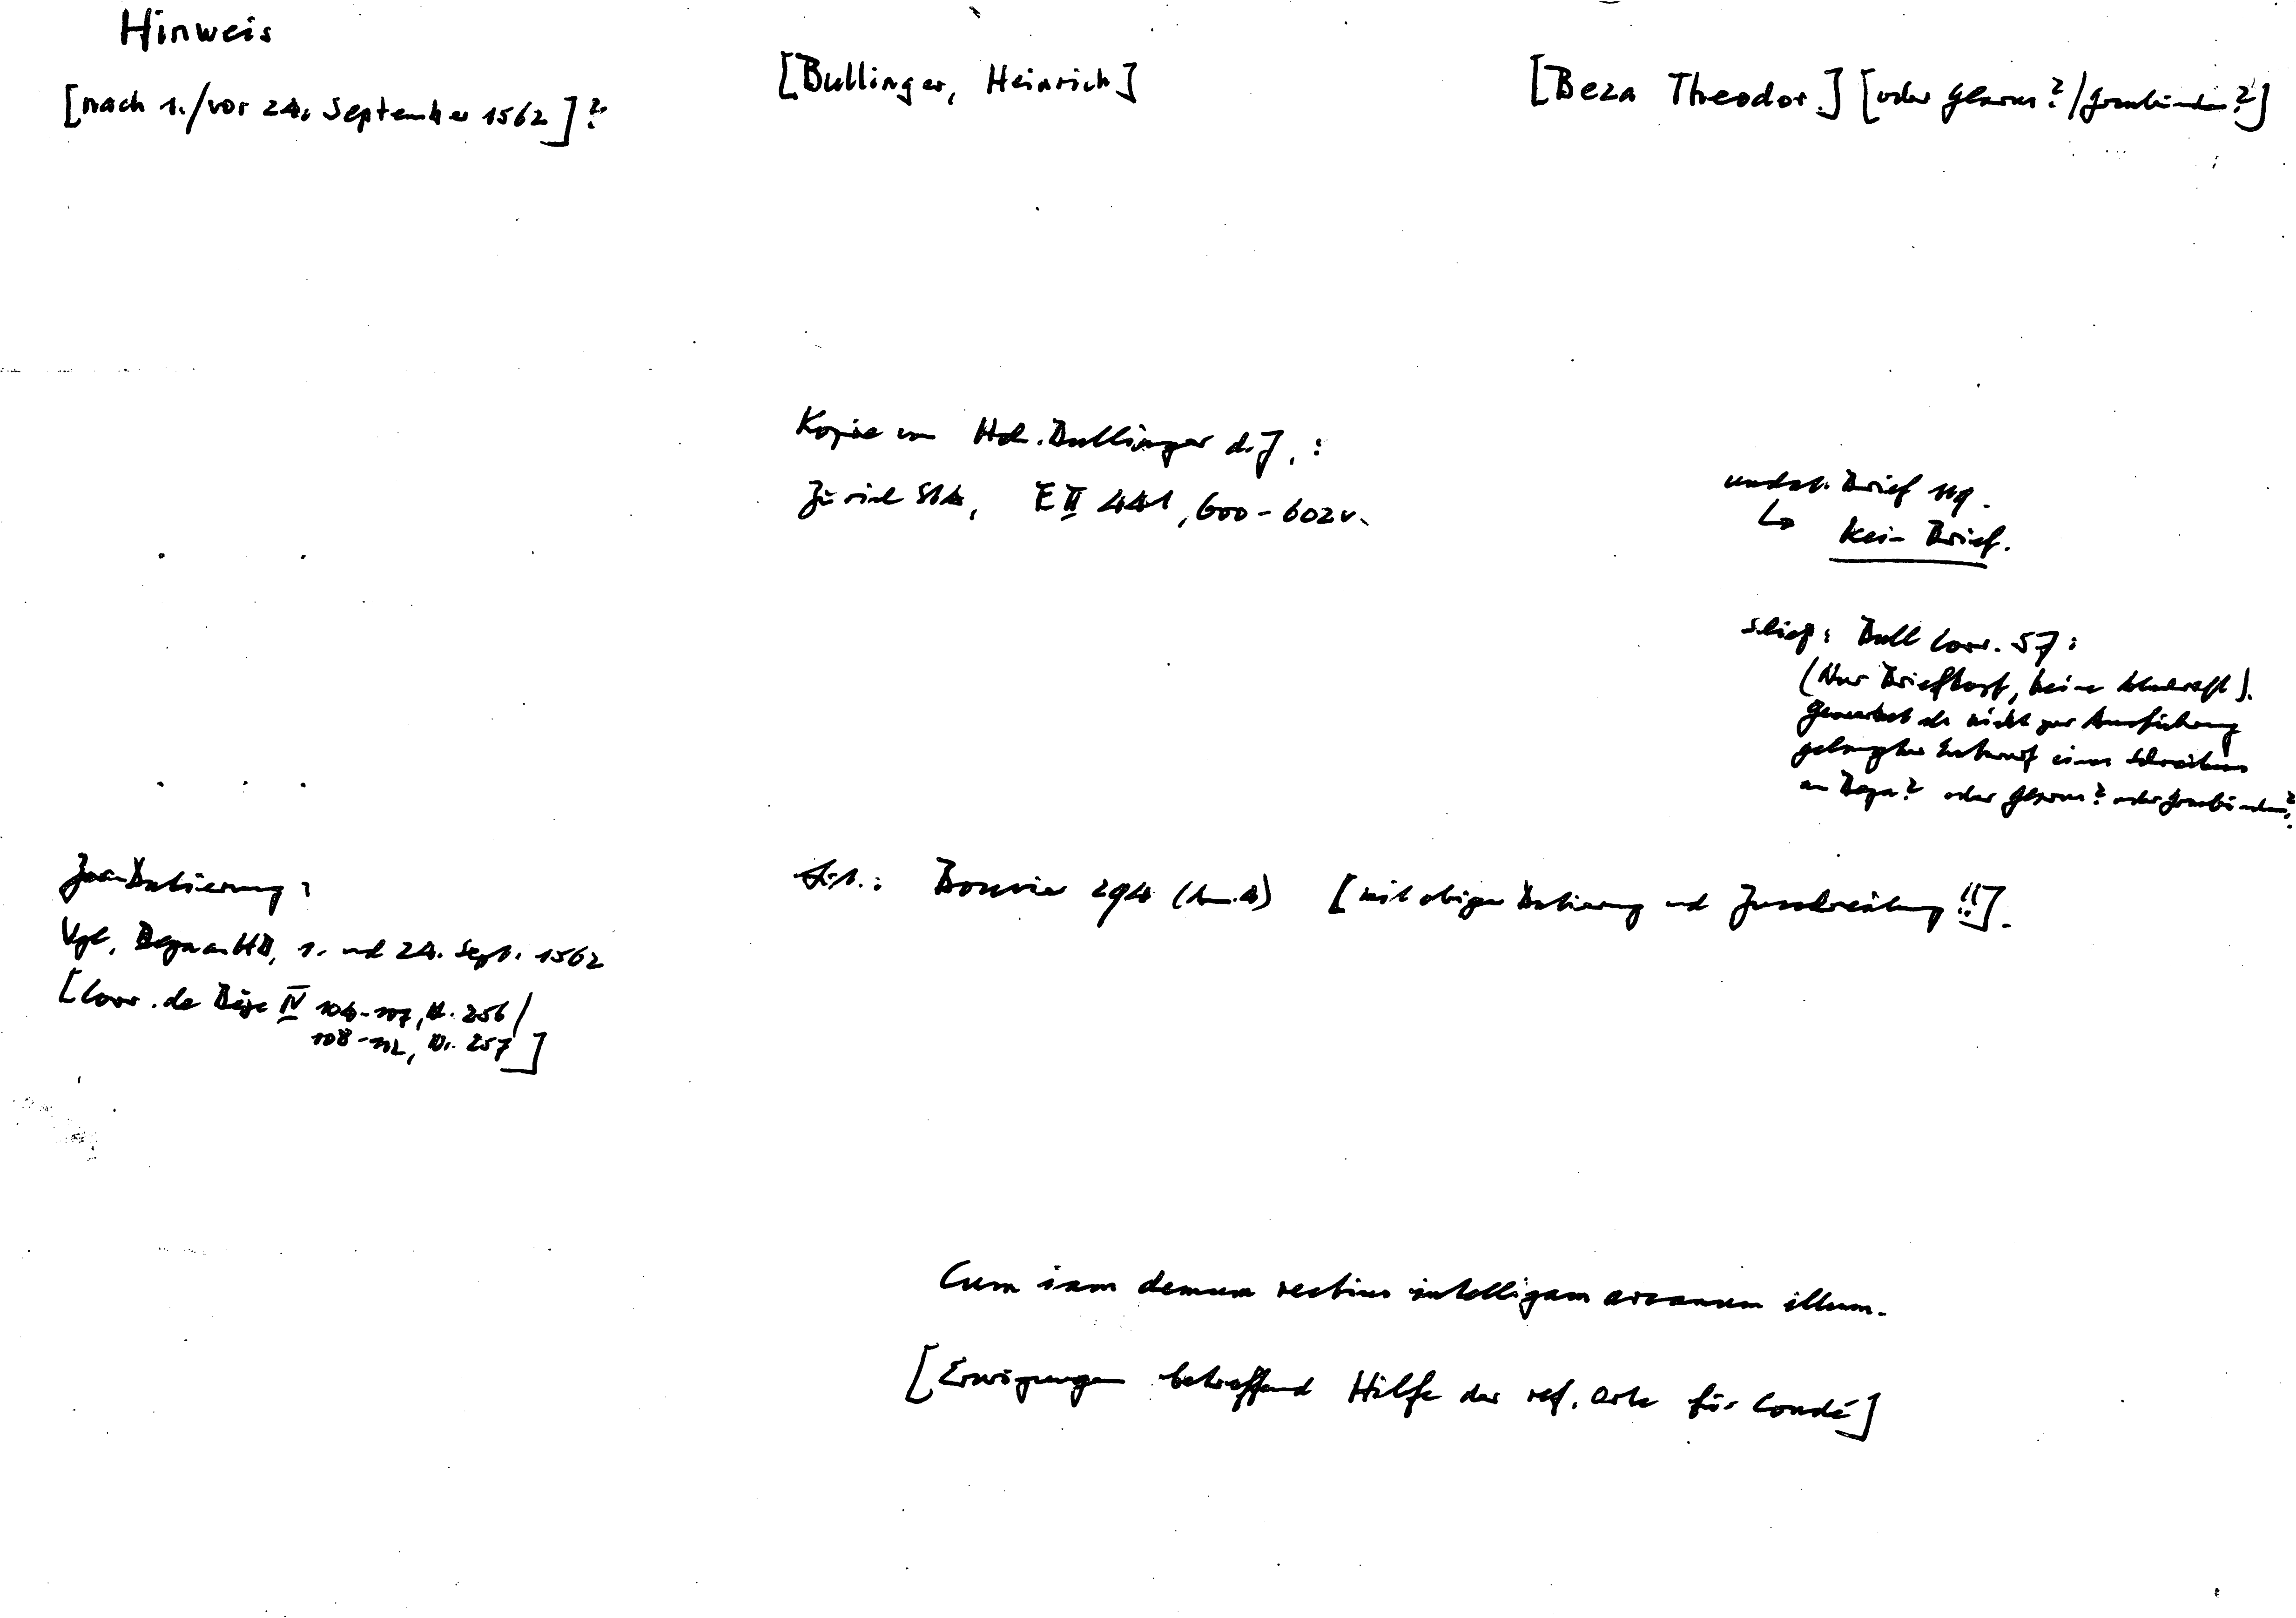 Hinweis
[nach 1./vor 24. September 1562]?
[Bullinger, Heinrich]
[Beza Theodor.] [oder Glarus?/Graubünden?]
Kopie von Hch. Bullinger d.J.:
Zürich StA, E II 441, 600-602v.
undat. Brief 119.
↳ Kein Brief.
Schieß: Bull Corr. 57:
(Nur Brieftext, keine Unterschft).
Gewertet als nicht zur Ausführung
gelangter Entwurf eines Schreibens
an Beza? oder Glarus? oder Graubünden?
Zur Datierung:
Vgl. Beza an HB, 1. und 24. Sept. 1562
[Corr. de Bèze IV 104-107, Nr. 256/
108-112, Nr. 257]
Lit.: Bouvier 294 (Anm. 4) [mit obiger Datierung und Zuschreibung!!].
Cum iam demum rectius intelligam arcanum illum.
[Erwägungen betreffend Hilfe der ref. Orte für Condé]